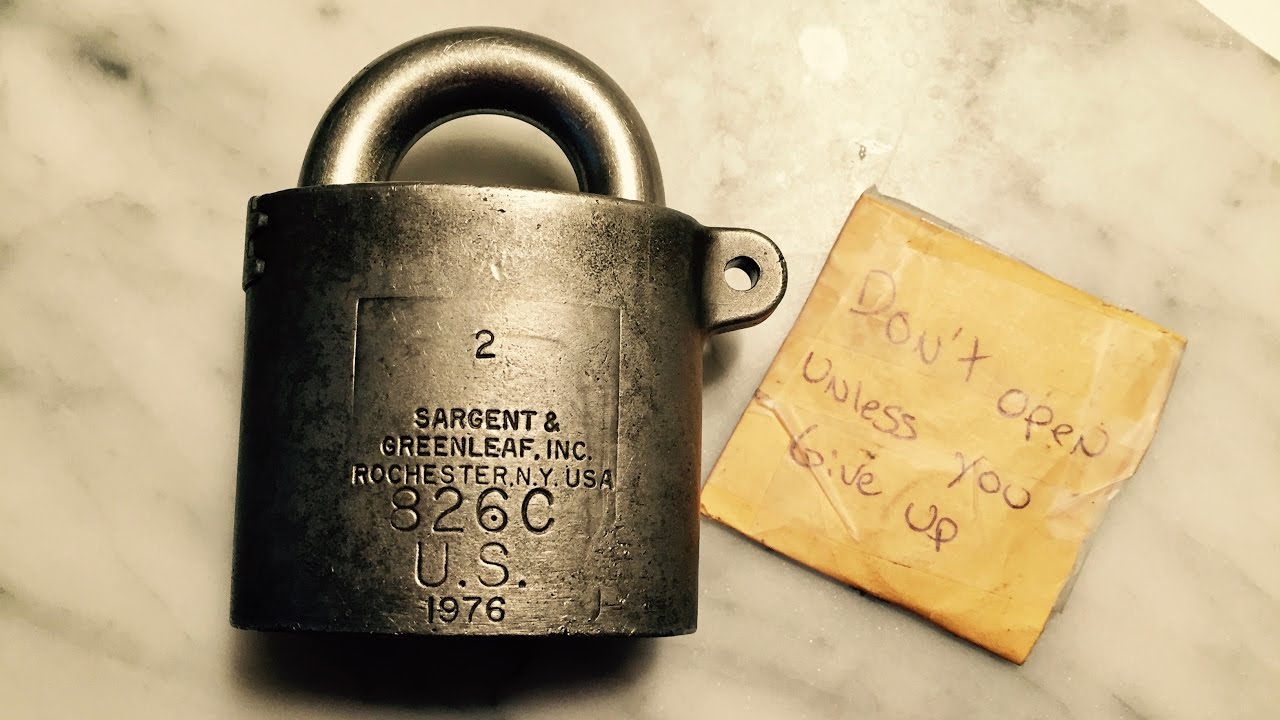 2
SARGENT &
GREENLEAF, INC.
ROCHESTER, N.Y. USA
826C
U.S.
1976
Don't open
unless you
Give up